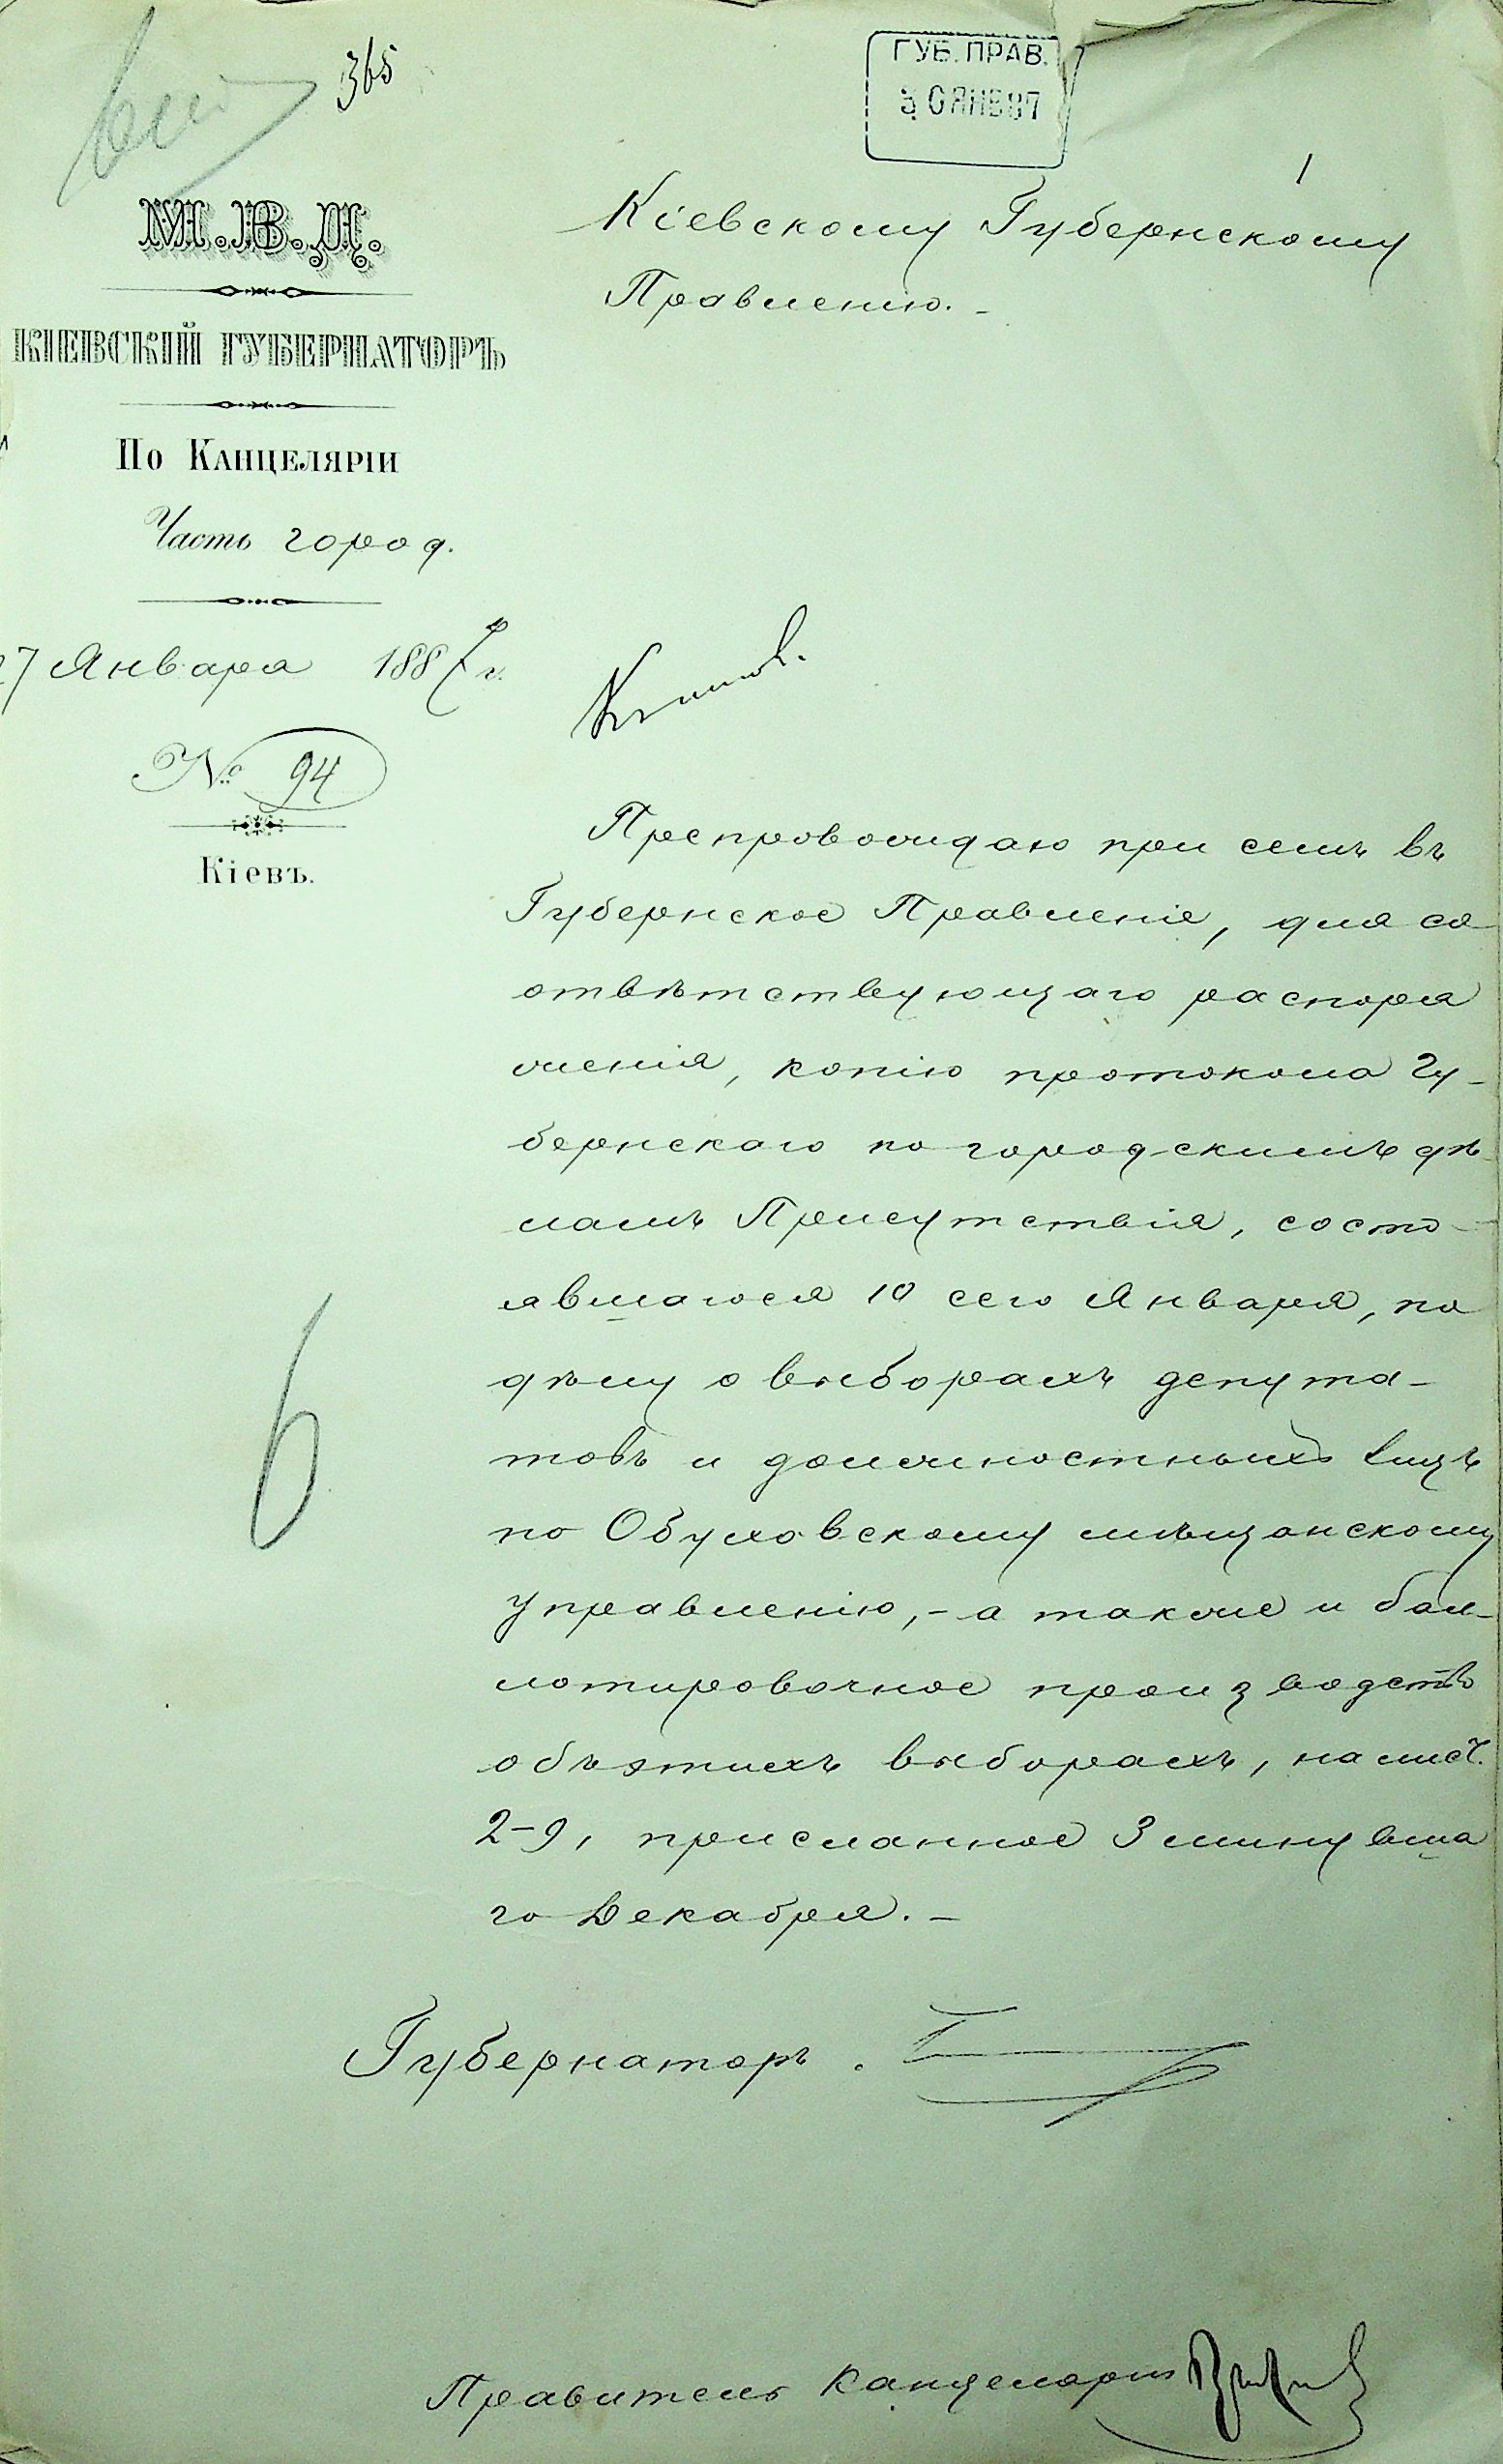 365
ГУБ. ПРАВ.
30 ЯНВ 87
1
М.В.Д.
КІЕВСКІЙ ГУБЕРНАТОРЪ
По Канцеляріи
Часть город.
27 Января 1887 г.
№ 94
Кіевъ.
Кіевскому Губернскому
Правленію. -
Препровождаю при семъ въ
Губернское Правленіе, для со
отвѣтствующаго распоря
женія, копію протокола Гу-
бернскаго по городскимъ дѣ-
ламъ Присутствія, состо-
явшагося 10 сего Января, по
дѣлу о выборахъ депута-
товъ и должностныхъ лицъ
по Обуховскому мѣщанскому
управленію, - а также и бал-
лотировочное производство
объ этихъ выборахъ, на лист.
2-9, присланное 3 минувша
го Декабря. -
6
Губернаторъ.
Правитель Канцеляріи